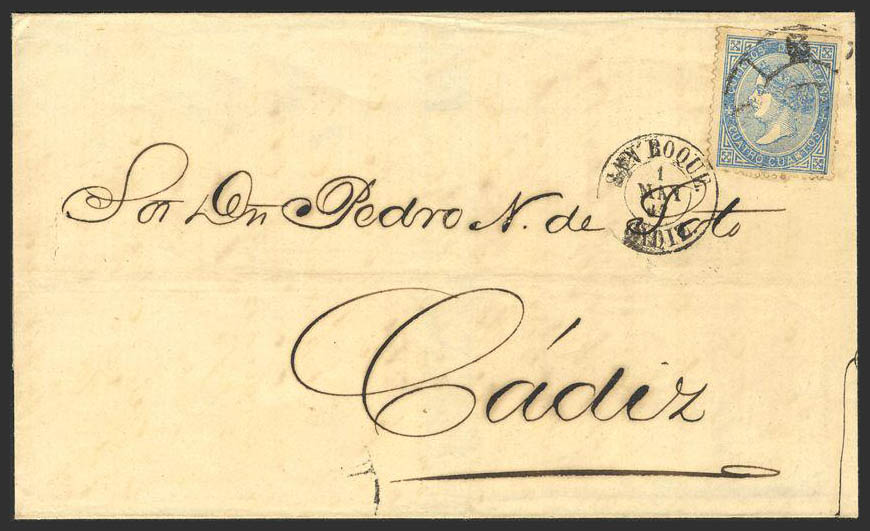 CORREOS DE ESPAÑA
CUATRO CUARTOS
63
SAN ROQUE
1
MAY
CADIZ
Sor Dn Pedro N. de Soto
Cádiz